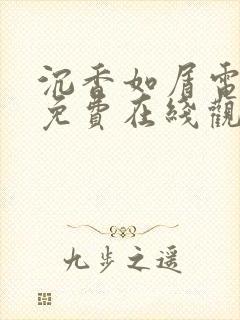 沉香如屑電
免費在綫觀
九步之遥